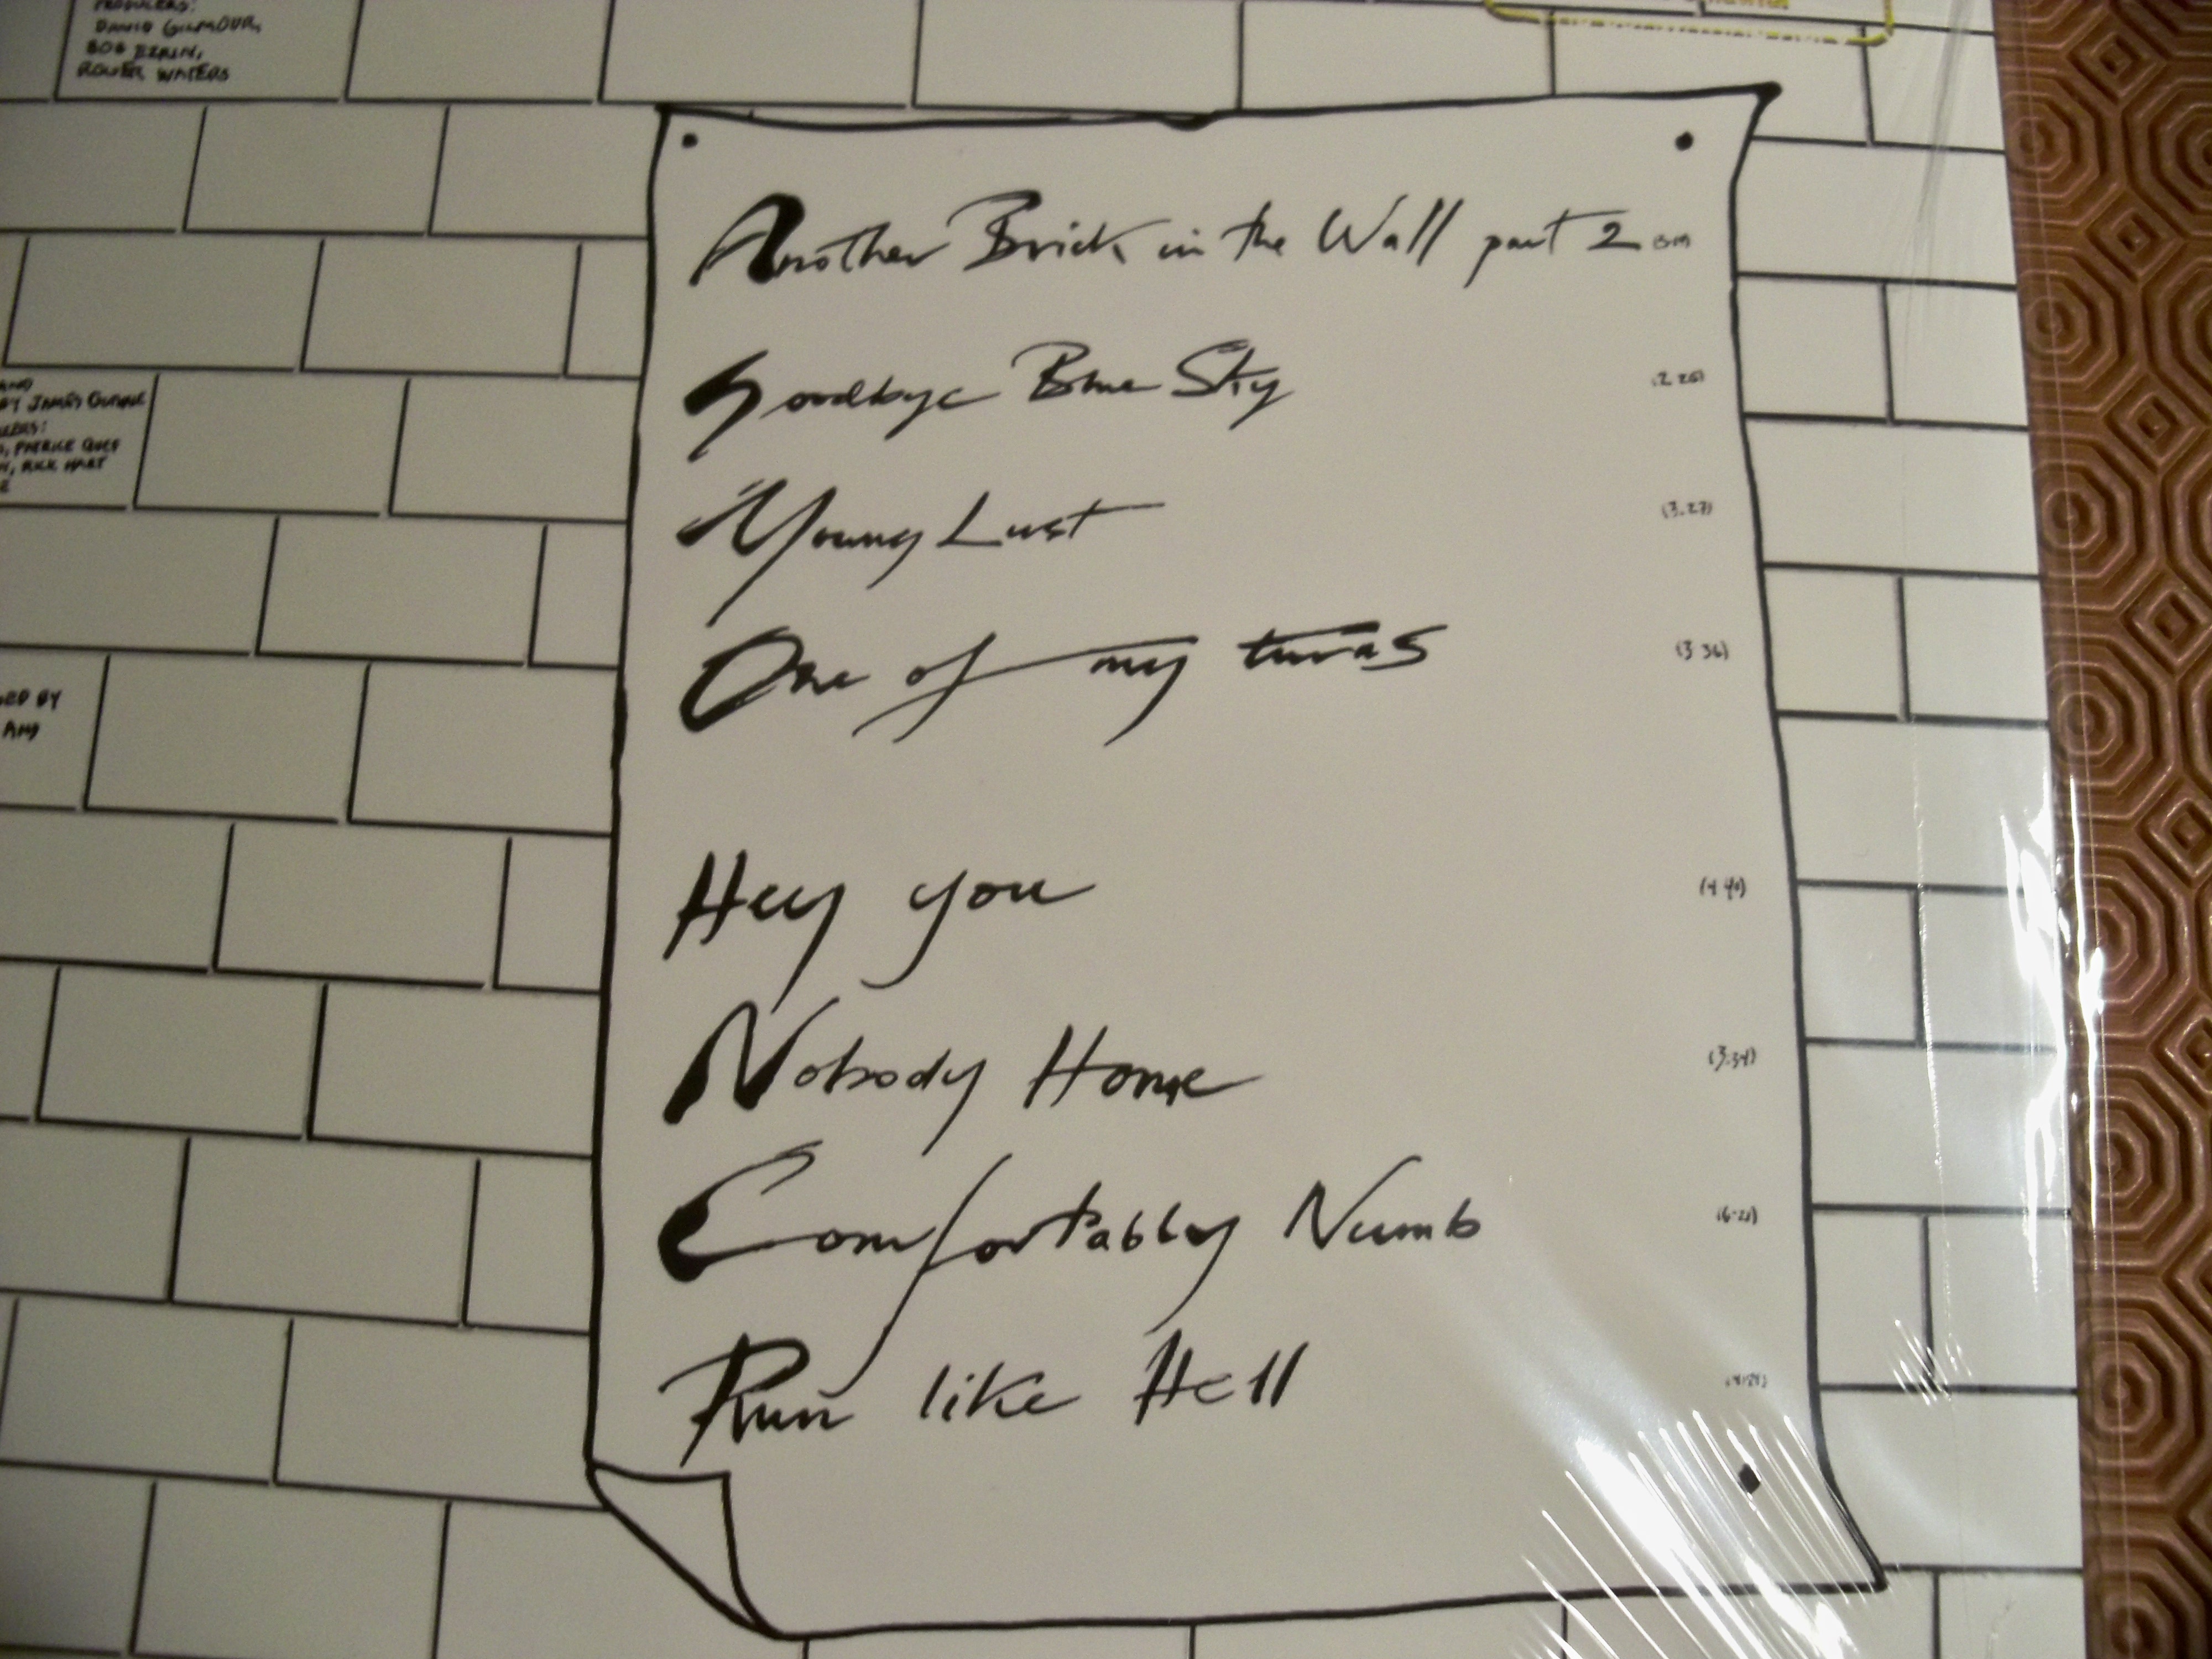 PRODUCERS:
DAVID GILMOUR,
BOB EZRIN,
ROGER WATERS
BY JAMES
PATRICE
RICK HART
BY
AND
Another Brick in the Wall part 2
Goodbye Blue Sky
Young Lust (3.27)
One of my turns (3.36)
Hey you (4.40)
Nobody Home (3.34)
Comfortably Numb
Run like Hell